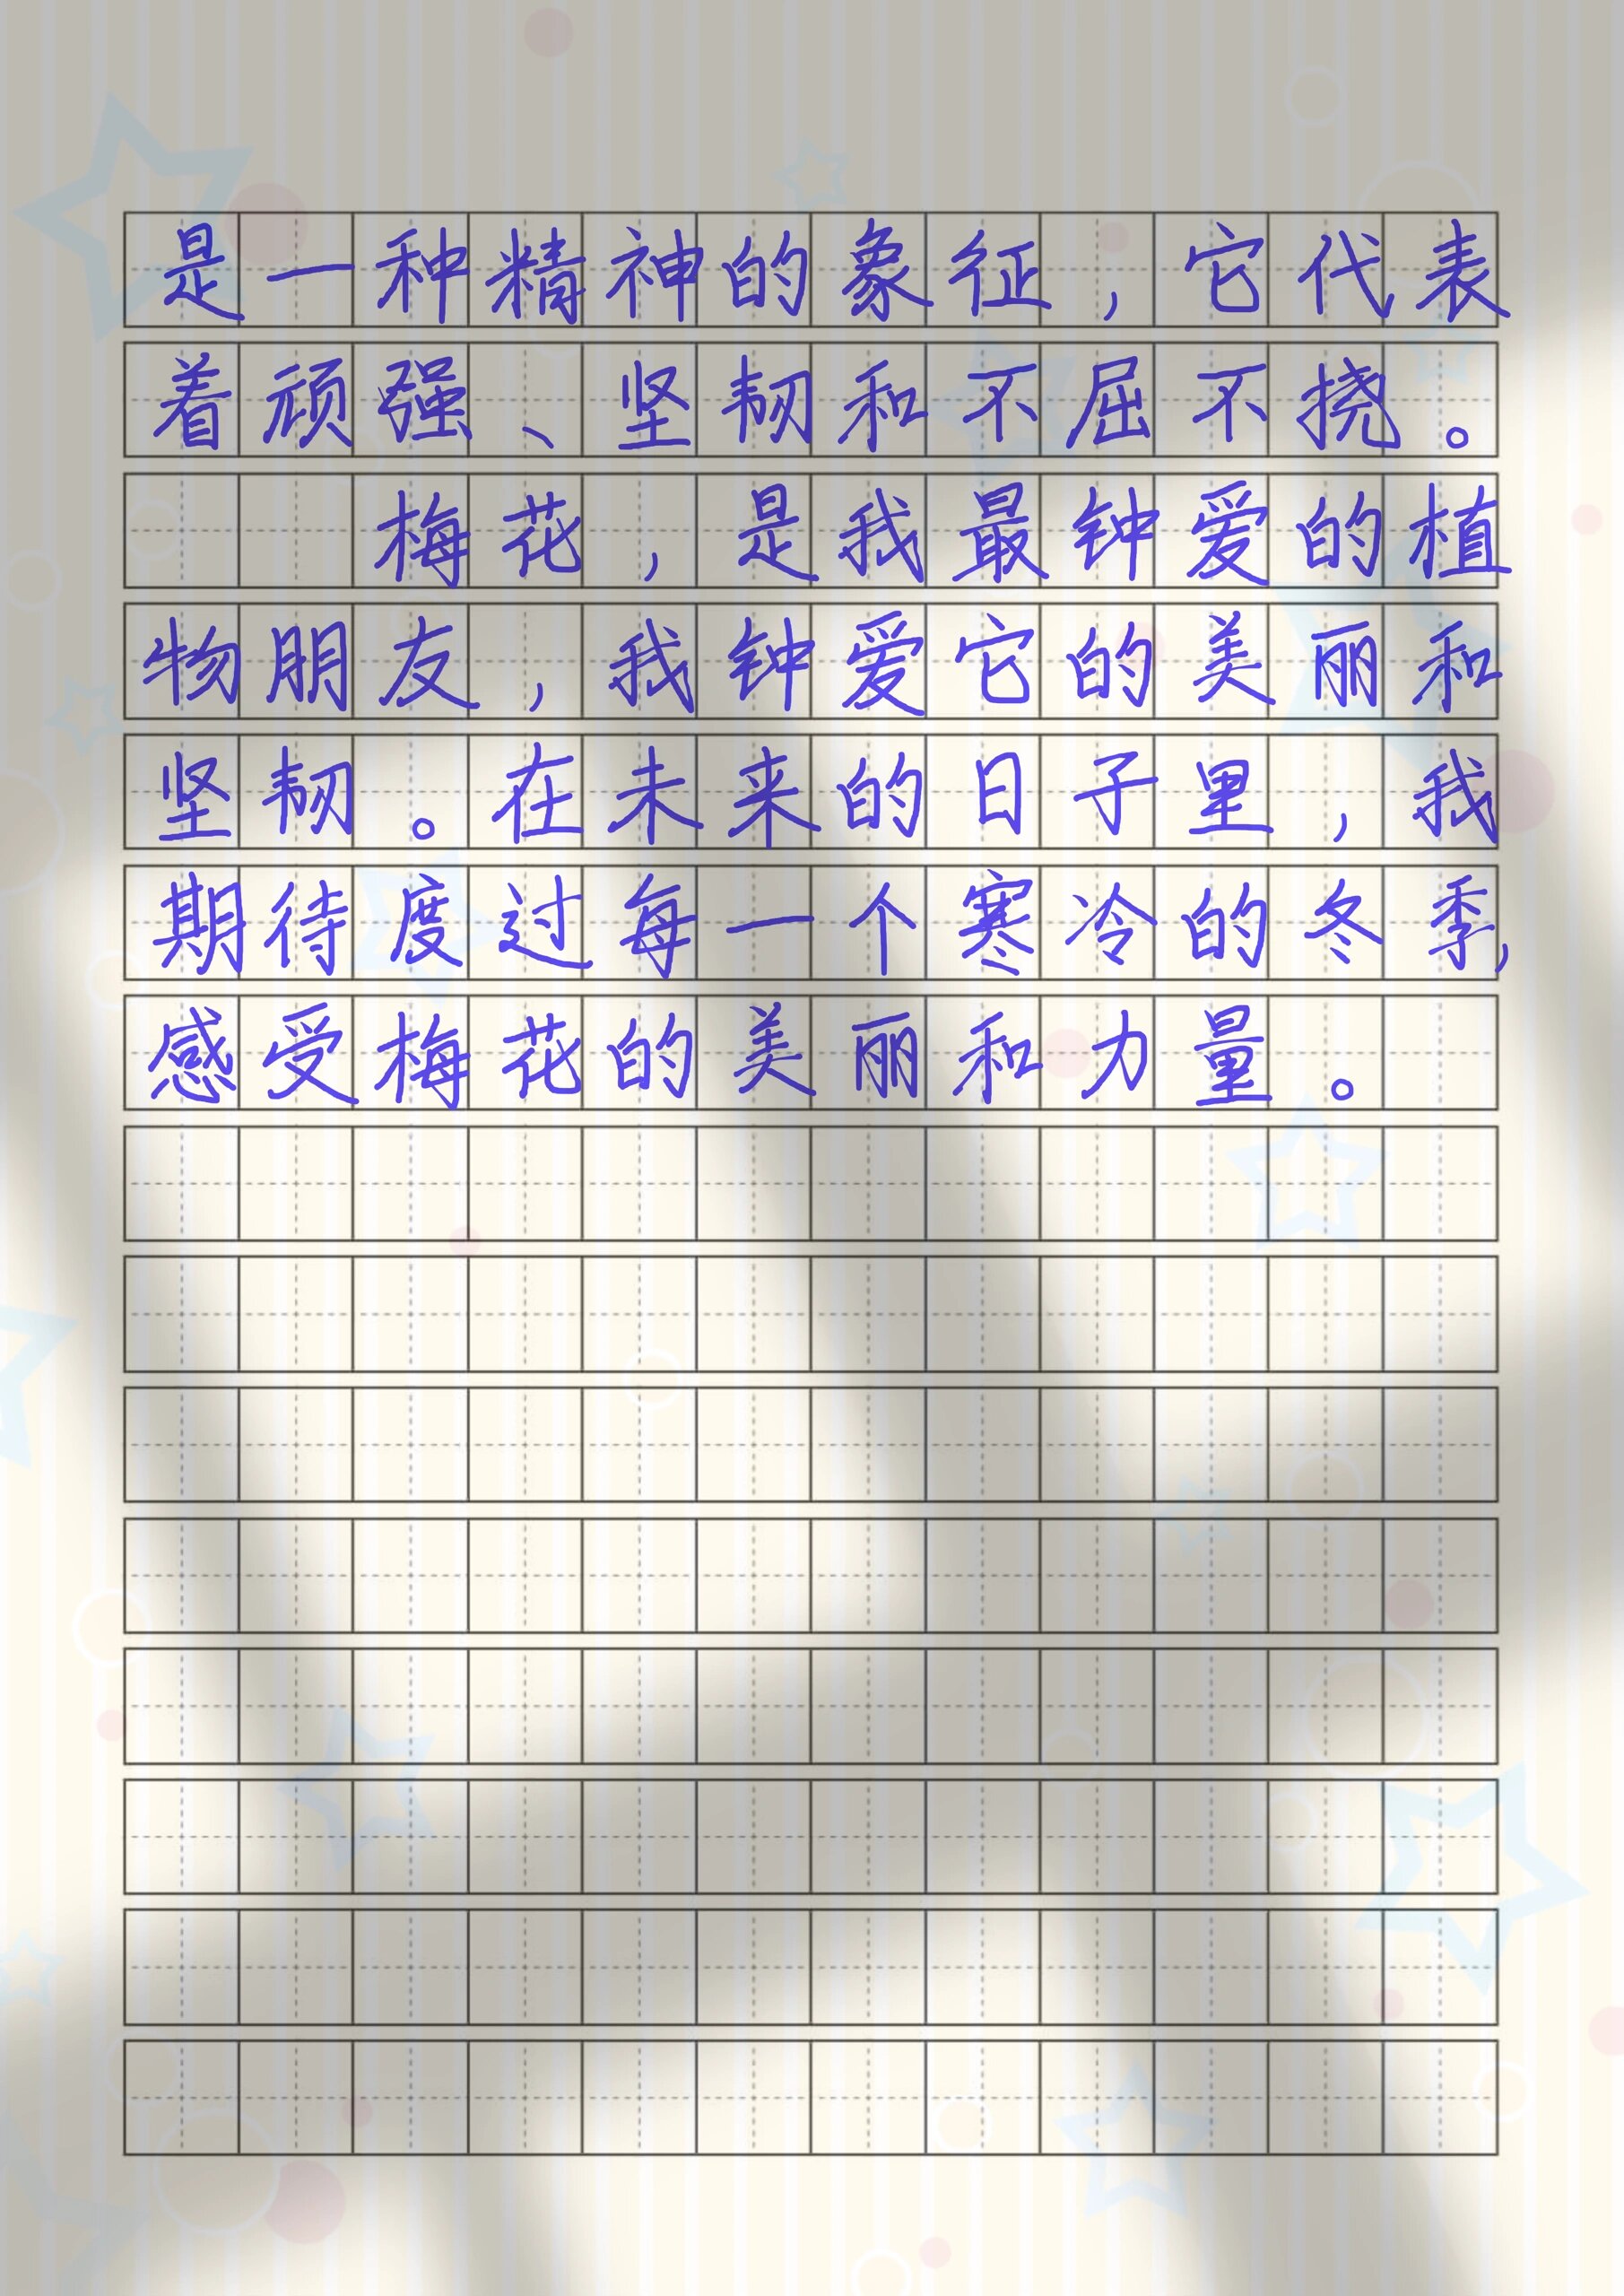 是一种精神的象征，它代表
着顽强、坚韧和不屈不挠。
梅花，是我最钟爱的植
物朋友，我钟爱它的美丽和
坚韧。在未来的日子里，我
期待度过每一个寒冷的冬季，
感受梅花的美丽和力量。